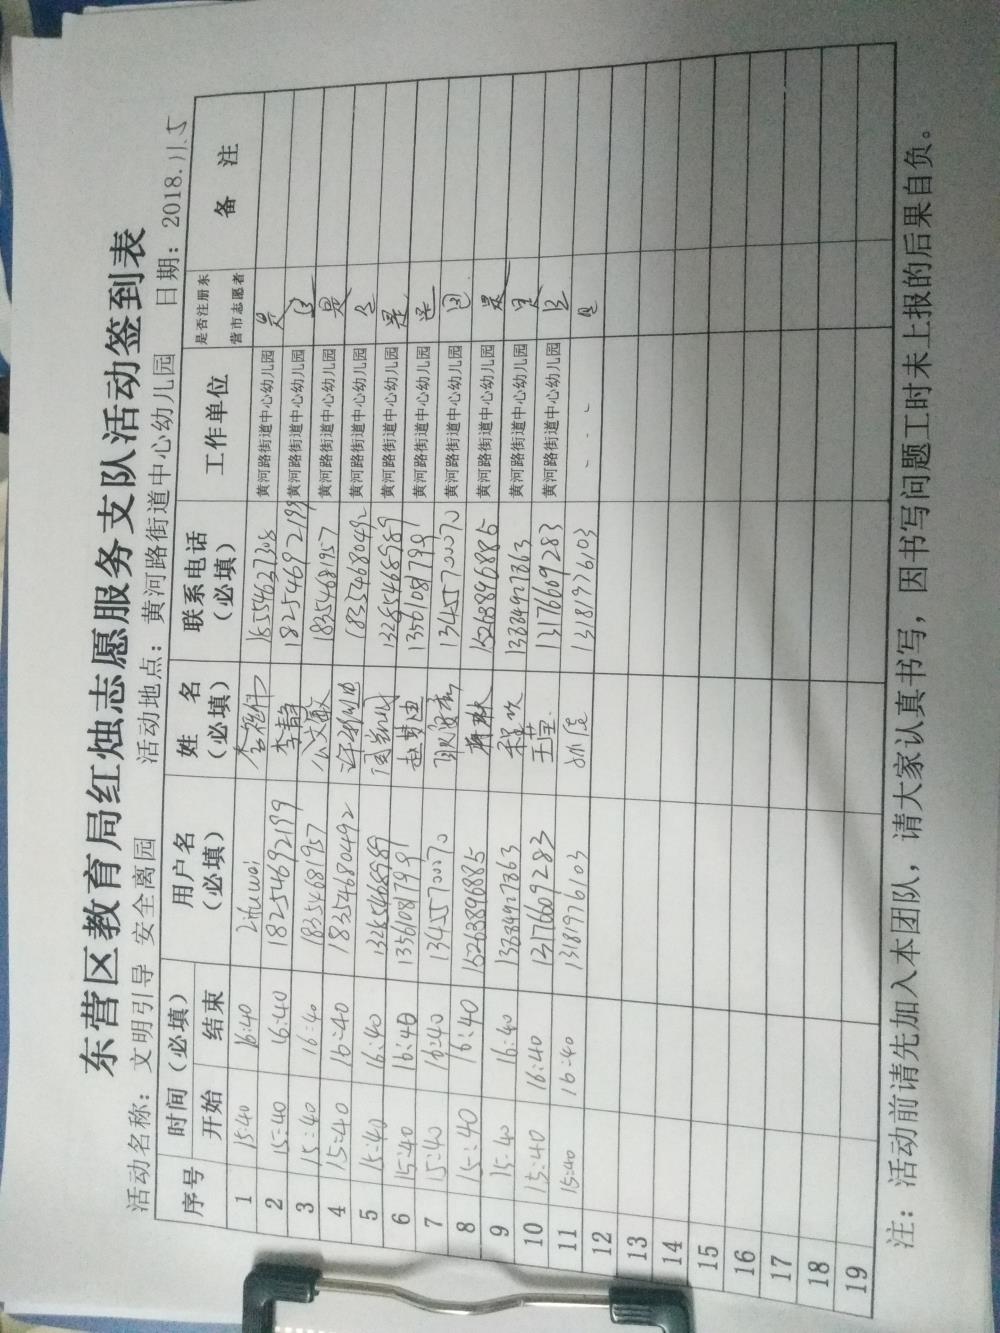 东营区教育局红烛志愿服务支队活动签到表
活动名称：文明引导 安全离园 活动地点：黄河路街道中心幼儿园 日期：2018.11.5
序号 时间（必填） 用户名（必填） 姓 名（必填） 联系电话（必填） 工作单位 是否注册东营市志愿者 备 注
开始 结束
1 15:40 16:40 黄河路街道中心幼儿园 是
2 15:40 16:40 18254692199 李静 18254692199 黄河路街道中心幼儿园
3 15:40 16:40 18354681957 公文敏 18354681957 黄河路街道中心幼儿园 是
4 15:40 16:40 18354680492 18354680492 黄河路街道中心幼儿园
5 15:40 16:40 13254689 黄河路街道中心幼儿园 是
6 15:40 16:40 赵梦迪 黄河路街道中心幼儿园
7 15:40 16:40 13455700070 13455700070 黄河路街道中心幼儿园
8 15:40 16:40 15263896885 15263896885 黄河路街道中心幼儿园 是
9 15:40 16:40 黄河路街道中心幼儿园 是
10 15:40 16:40 13176609283 王萱 13176609283 黄河路街道中心幼儿园
11 15:40 16:40 13181976103 13181976103
12
13
14
15
16
17
18
19
注：活动前请先加入本团队，请大家认真书写，因书写问题工时未上报的后果自负。